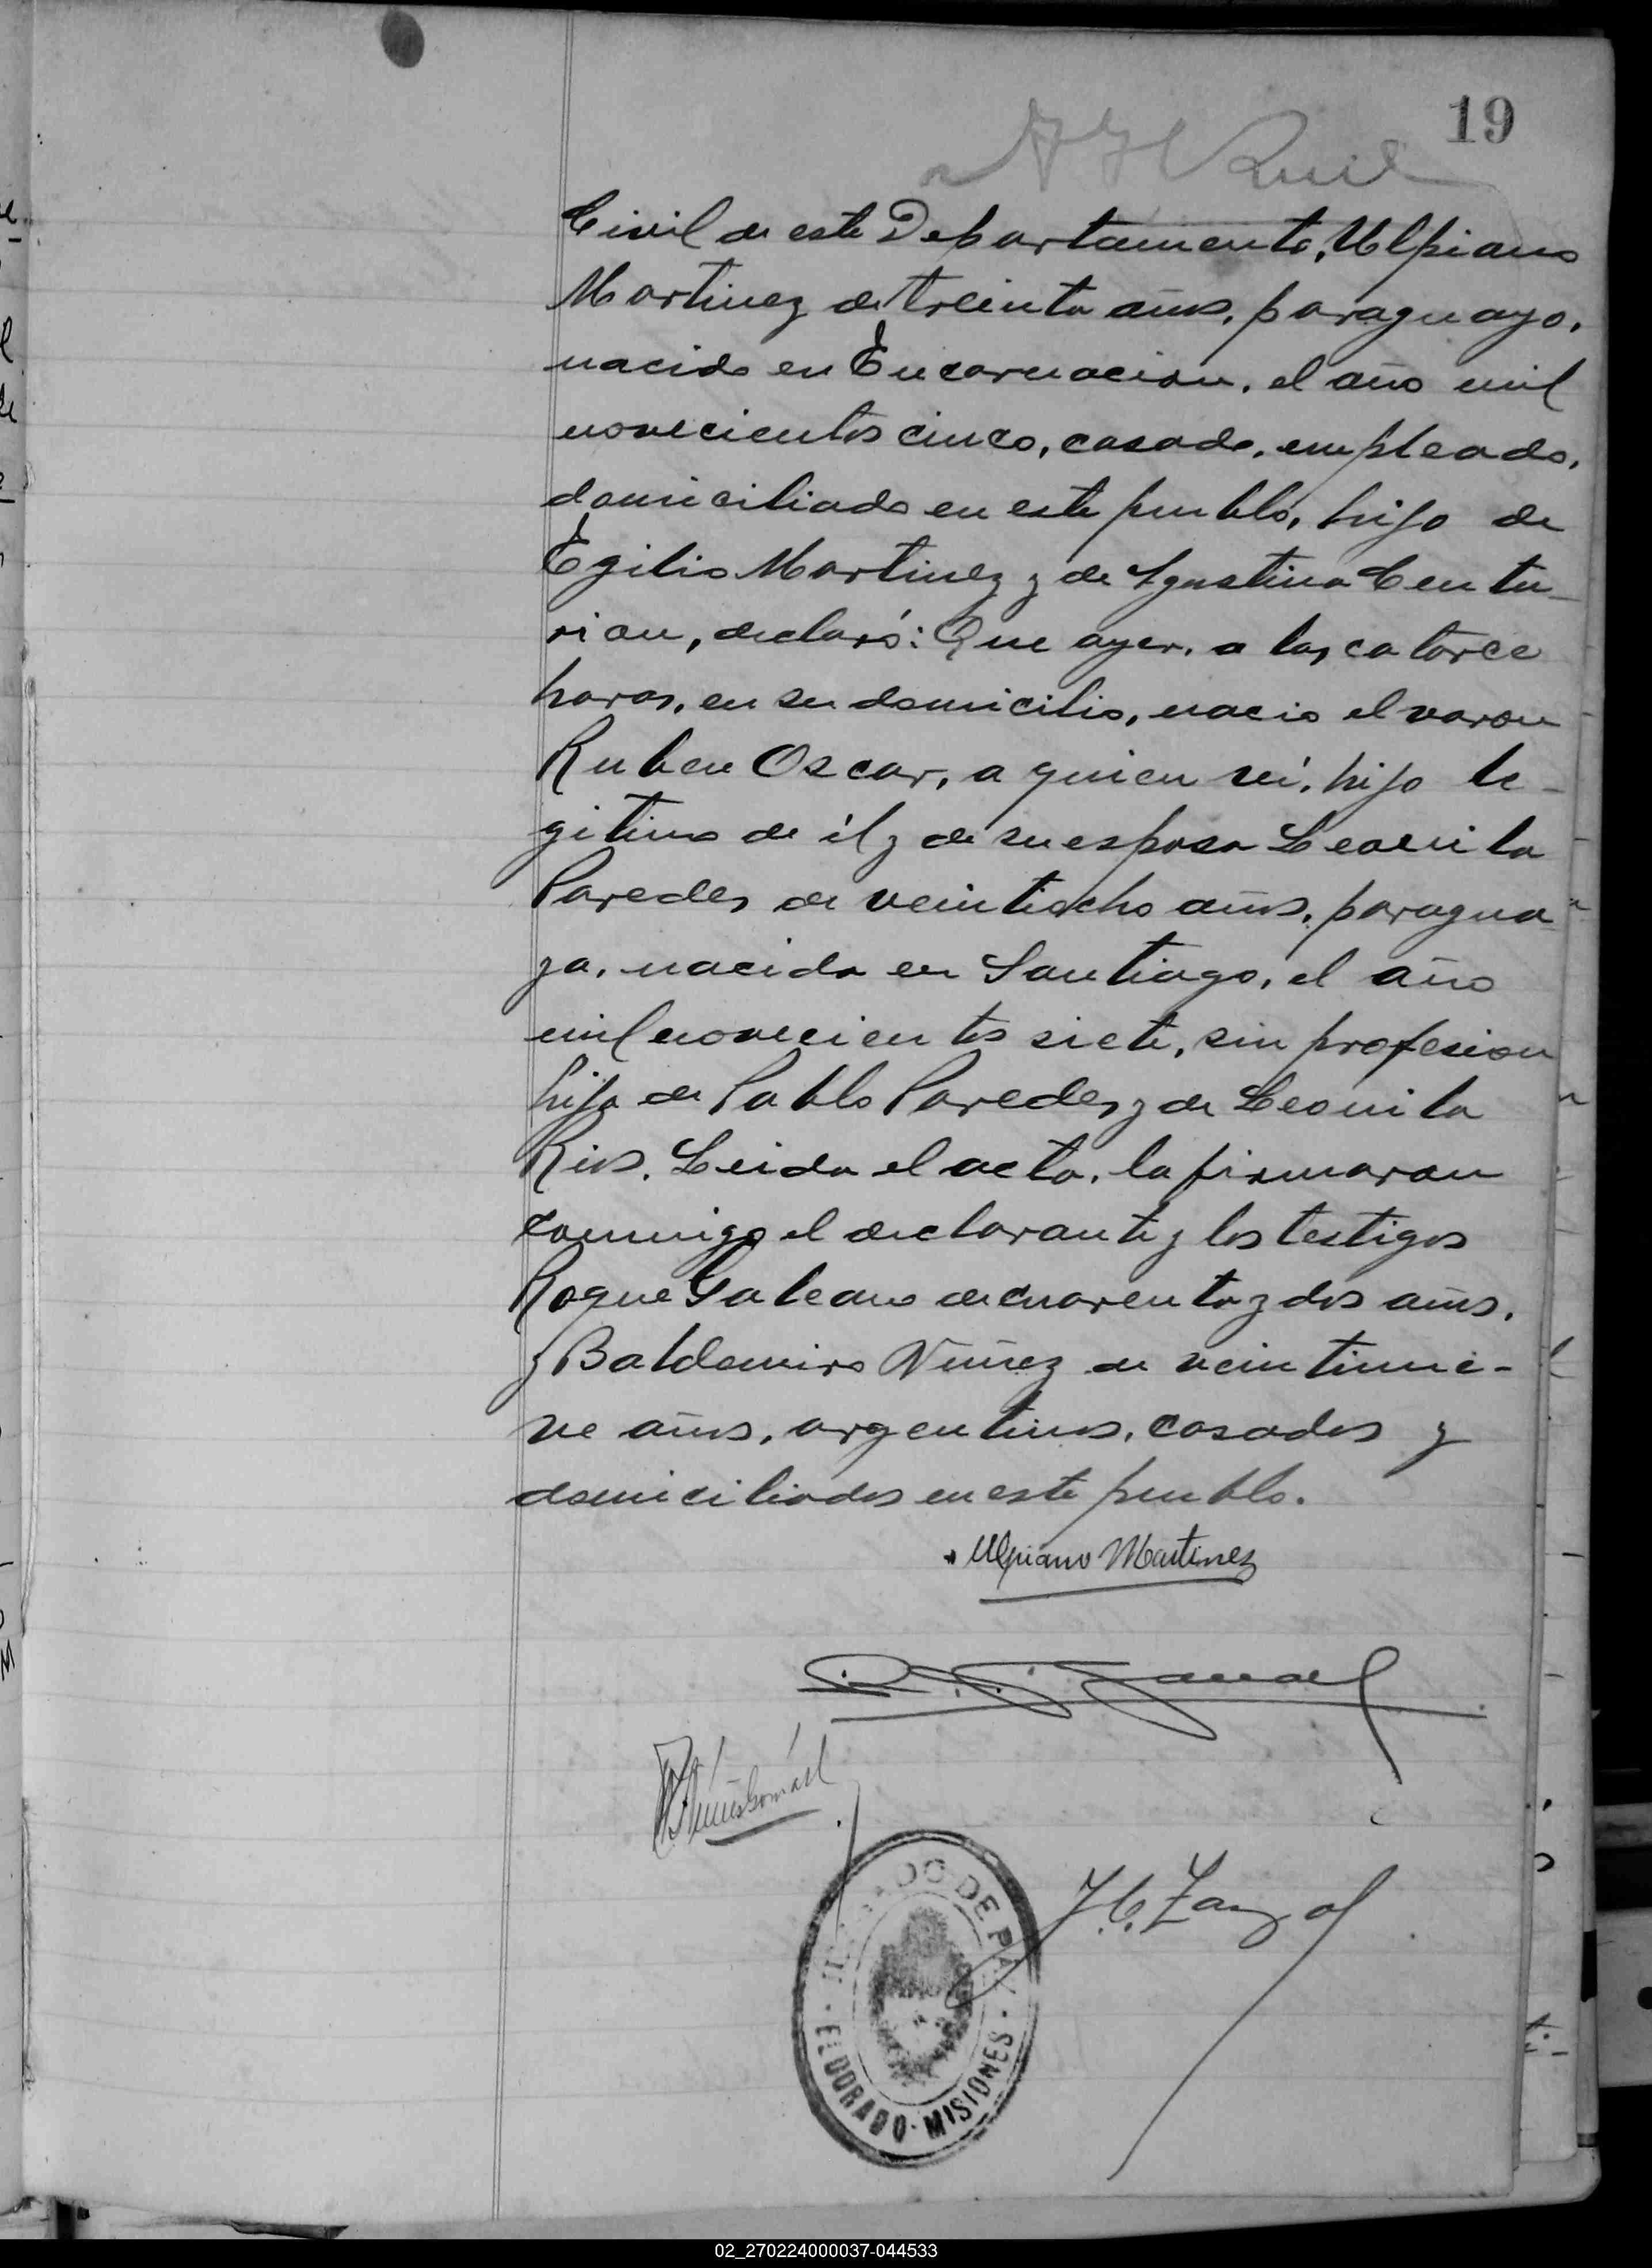 19
Civil de este Departamento, Ulpiano
Martinez de treinta años, paraguayo,
nacido en Encarnacion, el año mil
novecientos cinco, casado, empleado,
domiciliado en este pueblo, hijo de
Egilio Martinez y de Agustina Centu-
rion, declaró: Que ayer, a las catorce
horas, en su domicilio, nacio el varon
Ruben Oscar, a quien ví, hijo le-
gitimo de él y de su esposa Leonila
Paredes de veintiocho años, paragua
ya, nacida en Santiago, el año
mil novecientos siete, sin profesion
hija de Pablo Paredes y de Leonila
Rios. Leida el acta, la firmaron
conmigo el declarante y los testigos
Roque Galeano de cuarenta y dos años,
y Baldomiro Núñez de veintinue-
ve años, argentinos, casados y
domiciliados en este pueblo.
Ulpiano Martinez
JUZGADO DE PAZ
ELDORADO · MISIONES
02_270224000037-044533